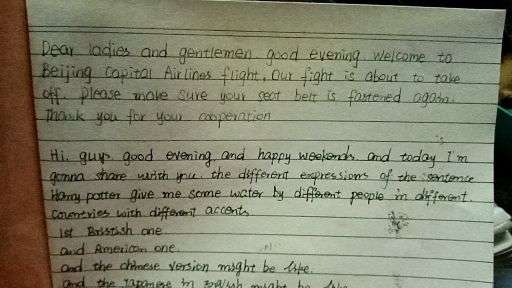 Dear ladies and gentlemen good evening welcome to
Beijing Capital Airlines flight, Our fight is about to take
off. please make sure your seat belt is fastened again.
Thank you for your cooperation
Hi, guys good evening and happy weekends and today I'm
gonna share with you the different expressions of the sentence
Harry potter give me some water by different people in different
countries with different accents
1st Bristish one
and American one.
and the chinese version might be like.
and the Japanese in English might be like